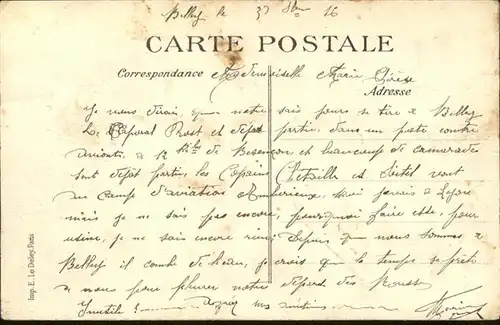 Belley le 27 16
CARTE POSTALE
Correspondance Mademoiselle Marie Thérèse
Adresse
Je vous dirais, que notre pours se tire à Belley
Le Caporal Prost est départ partie, dans un poste contre
avions, à 12 de Besançon, et beaucoup de camarades
sont départ partis, les Copains et vont
au camp d'aviation Ambérieux, moi jamais à Lyon
mais je ne sais pas encore, pourquoi faire etc, pour
usine, je ne sais encore rien; Depuis que nous sommes à
Belley il tombe de l'eau, je crois que le temps se prête
à nous pour pleurer notre départ des Rousses
Inutile ! mes
Imp. E. Le Deley, Paris